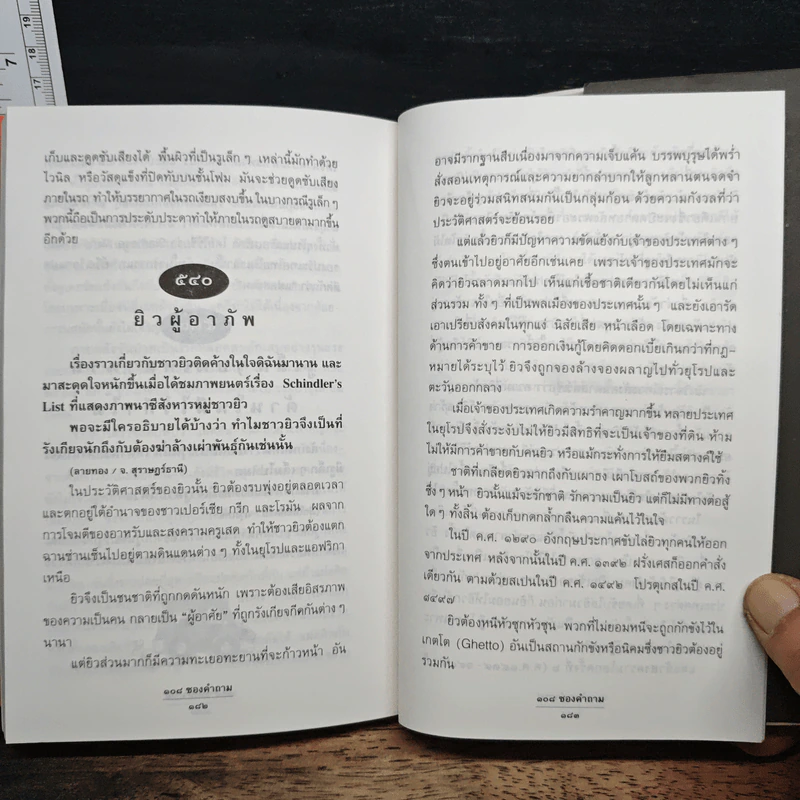 เก็บและดูดซับเสียงได้ พื้นผิวที่เป็นรูเล็ก ๆ เหล่านี้มักทำด้วย
ไวนิล หรือวัสดุแข็งที่ปิดทับบนชั้นโฟม มันจะช่วยดูดซับเสียง
ภายในรถ ทำให้บรรยากาศในรถเงียบสงบขึ้น ในบางกรณีรูเล็ก ๆ
พวกนี้ถือเป็นการประดับประดาทำให้ภายในรถดูสบายตามากขึ้น
อีกด้วย
๕๔๐
ยิวผู้อาภัพ
เรื่องราวเกี่ยวกับชาวยิวติดค้างในใจดิฉันมานาน และ
มาสะดุดใจหนักขึ้นเมื่อได้ชมภาพยนตร์เรื่อง Schindler's
List ที่แสดงภาพนาซีสังหารหมู่ชาวยิว
พอจะมีใครอธิบายได้บ้างว่า ทำไมชาวยิวจึงเป็นที่
รังเกียจนักถึงกับต้องฆ่าล้างเผ่าพันธุ์กันเช่นนั้น
(ลายทอง / จ. สุราษฎร์ธานี)
ในประวัติศาสตร์ของยิวนั้น ยิวต้องรบพุ่งอยู่ตลอดเวลา
และตกอยู่ใต้อำนาจของชาวเปอร์เซีย กรีก และโรมัน ผลจาก
การโจมตีของอาหรับและสงครามครูเสด ทำให้ชาวยิวต้องแตก
ฉานซ่านเซ็นไปอยู่ตามดินแดนต่าง ๆ ทั้งในยุโรปและแอฟริกา
เหนือ
ยิวจึงเป็นชนชาติที่ถูกกดดันหนัก เพราะต้องเสียอิสรภาพ
ของความเป็นคน กลายเป็น "ผู้อาศัย" ที่ถูกรังเกียจกีดกันต่าง ๆ
นานา
แต่ยิวส่วนมากก็มีความทะเยอทะยานที่จะก้าวหน้า อัน
๑๐๘ ซองคำถาม
๑๘๒
อาจมีรากฐานสืบเนื่องมาจากความเจ็บแค้น บรรพบุรุษได้พร่ำ
สั่งสอนเหตุการณ์และความยากลำบากให้ลูกหลานตนจดจำ
ยิวจะอยู่ร่วมสนิทสนมกันเป็นกลุ่มก้อน ด้วยความกังวลที่ว่า
ประวัติศาสตร์จะย้อนรอย
แต่แล้วยิวก็มีปัญหาความขัดแย้งกับเจ้าของประเทศต่าง ๆ
ซึ่งตนเข้าไปอยู่อาศัยอีกเช่นเคย เพราะเจ้าของประเทศมักจะ
คิดว่ายิวฉลาดมากไป เห็นแก่เชื้อชาติเดียวกันโดยไม่เห็นแก่
ส่วนรวม ทั้ง ๆ ที่เป็นพลเมืองของประเทศนั้น ๆ และยังเอารัด
เอาเปรียบสังคมในทุกแง่ นิสัยเสีย หน้าเลือด โดยเฉพาะทาง
ด้านการค้าขาย การออกเงินกู้โดยคิดดอกเบี้ยเกินกว่าที่กฎ-
หมายได้ระบุไว้ ยิวจึงถูกจองล้างจองผลาญไปทั่วยุโรปและ
ตะวันออกกลาง
เมื่อเจ้าของประเทศเกิดความรำคาญมากขึ้น หลายประเทศ
ในยุโรปจึงสั่งระงับไม่ให้ยิวมีสิทธิที่จะเป็นเจ้าของที่ดิน ห้าม
ไม่ให้มีการค้าขายกับคนยิว หรือแม้กระทั่งการให้ยืมสตางค์ใช้
ชาติที่เกลียดยิวมากถึงกับเผาธง เผาโบสถ์ของพวกยิวทิ้ง
ซึ่ง ๆ หน้า ยิวนั้นแม้จะรักชาติ รักความเป็นยิว แต่ก็ไม่มีทางต่อสู้
ใด ๆ ทั้งสิ้น ต้องเก็บกดกล้ำกลืนความแค้นไว้ในใจ
ในปี ค.ศ. ๑๒๙๐ อังกฤษประกาศขับไล่ยิวทุกคนให้ออก
จากประเทศ หลังจากนั้นในปี ค.ศ. ๑๓๙๒ ฝรั่งเศสก็ออกคำสั่ง
เดียวกัน ตามด้วยสเปนในปี ค.ศ. ๑๔๙๒ โปรตุเกสในปี ค.ศ.
๑๔๙๗
ยิวต้องหนีหัวซุกหัวซุน พวกที่ไม่ยอมหนีจะถูกกักขังไว้ใน
เกตโต (Ghetto) อันเป็นสถานกักขังหรือนิคมซึ่งชาวยิวต้องอยู่
รวมกัน
๑๐๘ ซองคำถาม
๑๘๓
7
19
18
17